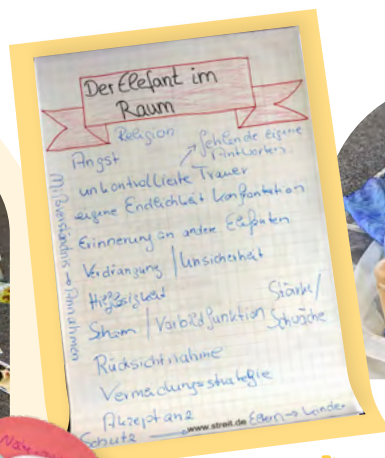 Der Elefant im
Raum
Religion
fehlende eigene
Antworten
Angst
unkontrollierte Trauer
eigene Endlichkeit Konfrontation
Erinnerung an andere Elefanten
Verdrängung / Unsicherheit
Stärke/
Scham / Vorbildfunktion Schwäche
Rücksichtnahme
Vermeidungsstrategie
Akzeptanz
Schutz
Eltern → Kinder
www.streit.de
Missverständnis → Annahmen